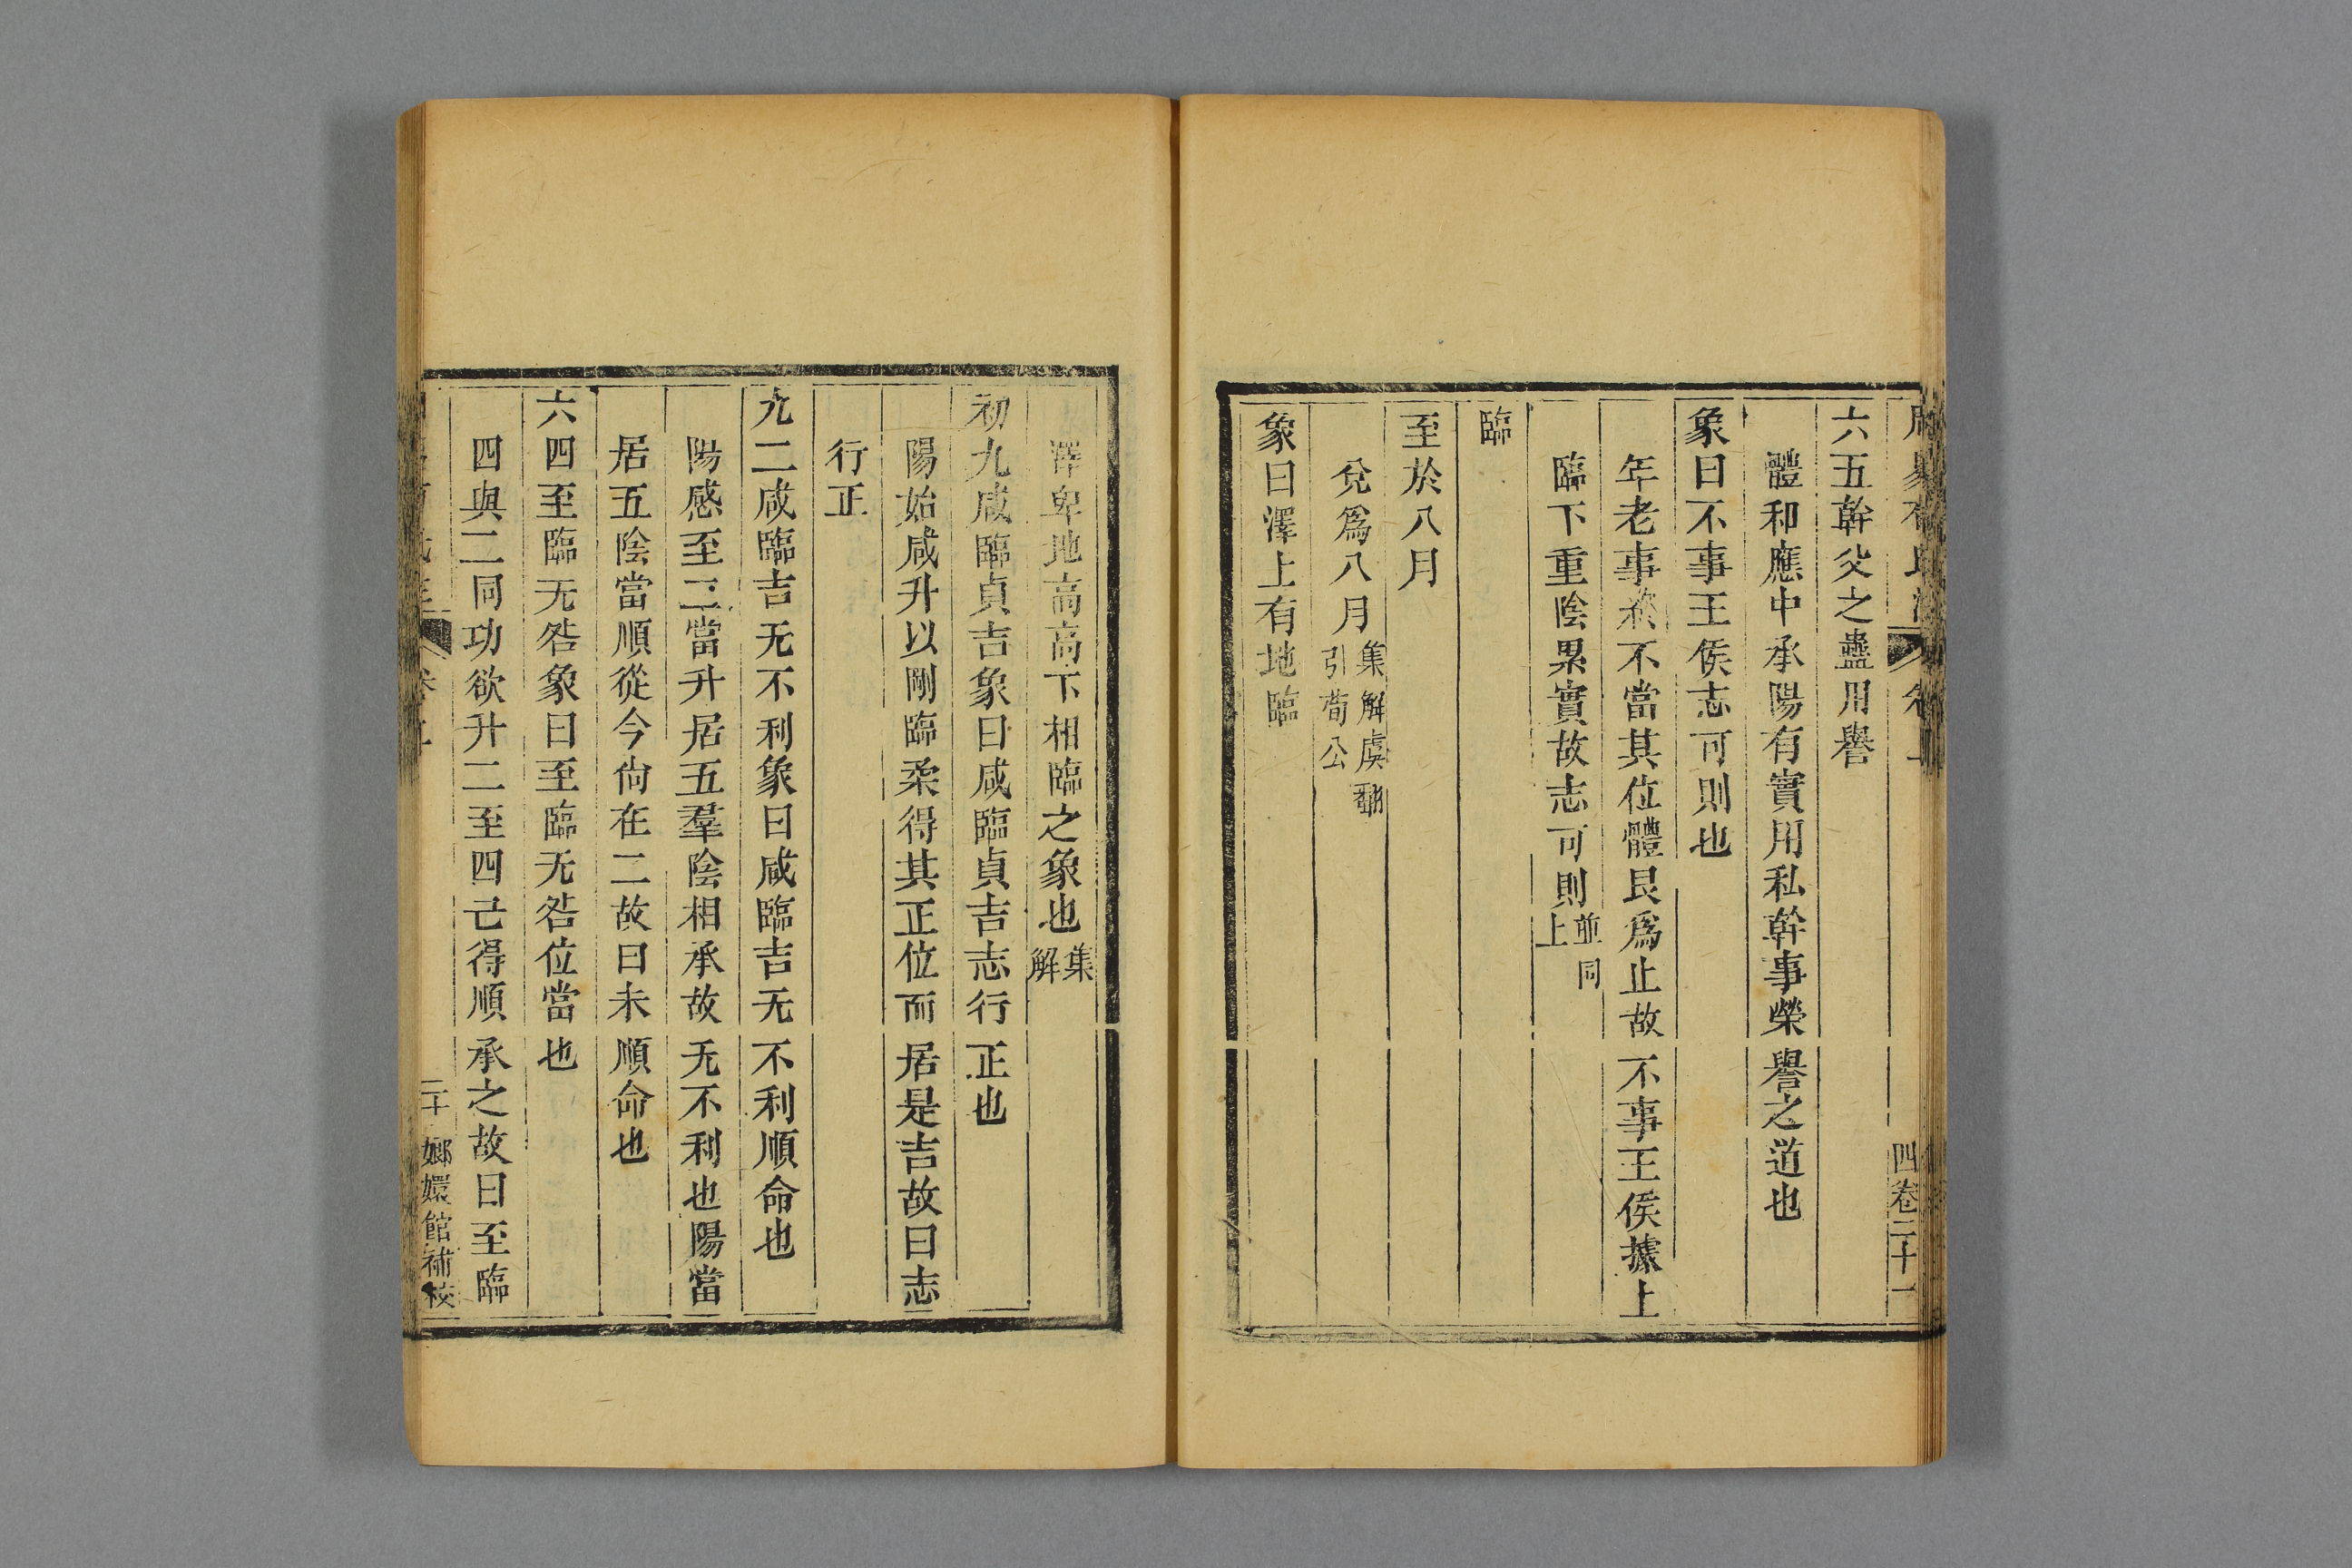 六五幹父之蠱用譽
體和應中承陽有實用私幹事榮譽之道也
象曰不事王侯志可則也
年老事終不當其位體艮爲止故不事王侯據上
臨下重陰累實故志可則並同上
臨
至於八月
兌爲八月集解虞翻引荀公
象曰澤上有地臨
澤卑地高高下相臨之象也集解
初九咸臨貞吉象曰咸臨貞吉志行正也
陽始咸升以剛臨柔得其正位而居是吉故曰志
行正
九二咸臨吉无不利象曰咸臨吉无不利順命也
陽感至二當升居五羣陰相承故无不利也陽當
居五陰當順從今尙在二故曰未順命也
六四至臨无咎象曰至臨无咎位當也
四與二同功欲升二至四己得順承之故曰至臨
四卷二十一
二十 嫏嬛館補校